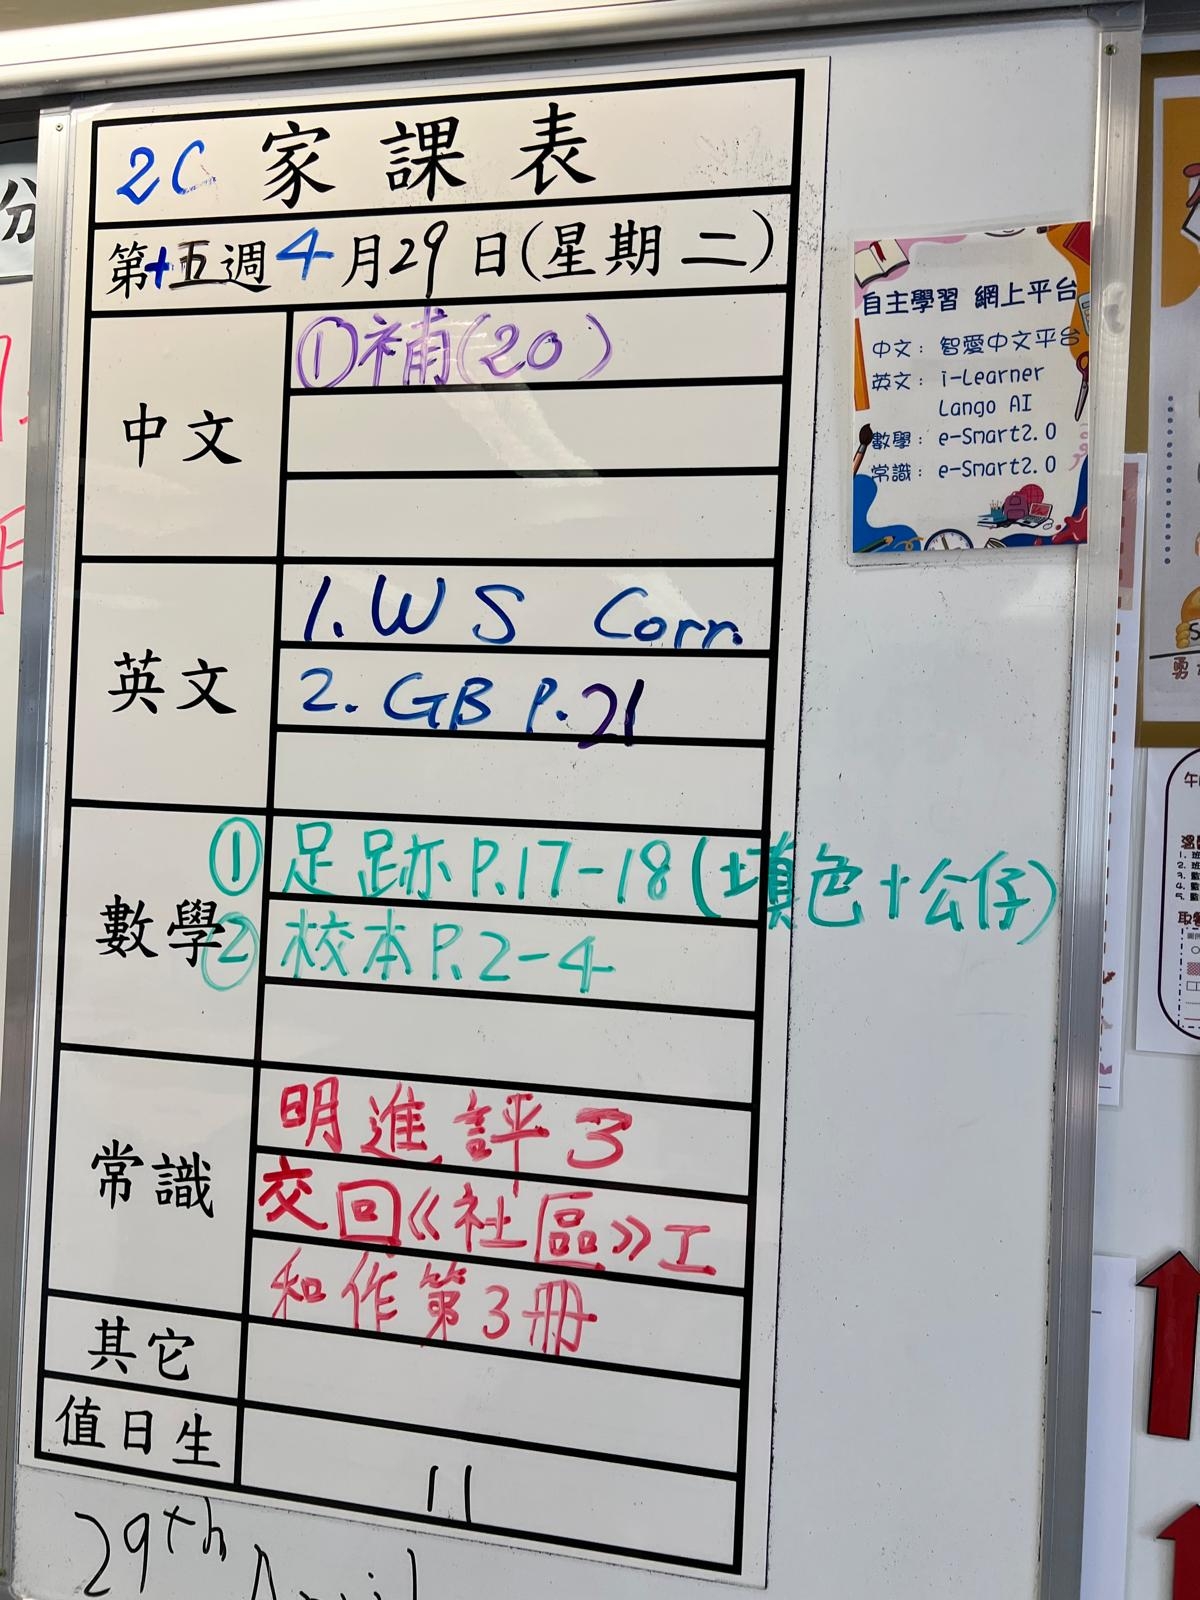 2C 家課表
第十五週 4月29日(星期二)
中文
①補(20)
英文
1. WS Corr.
2. GB P.21
數學
① 足跡P.17-18(填色+公仔)
② 校本P.2-4
常識
明進評3
交回《社區》工
和作第3冊
其它
值日生
11
29th
April
自主學習 網上平台
中文：智愛中文平台
英文：i-Learner
Lango AI
數學：e-Smart2.0
常識：e-Smart2.0
分